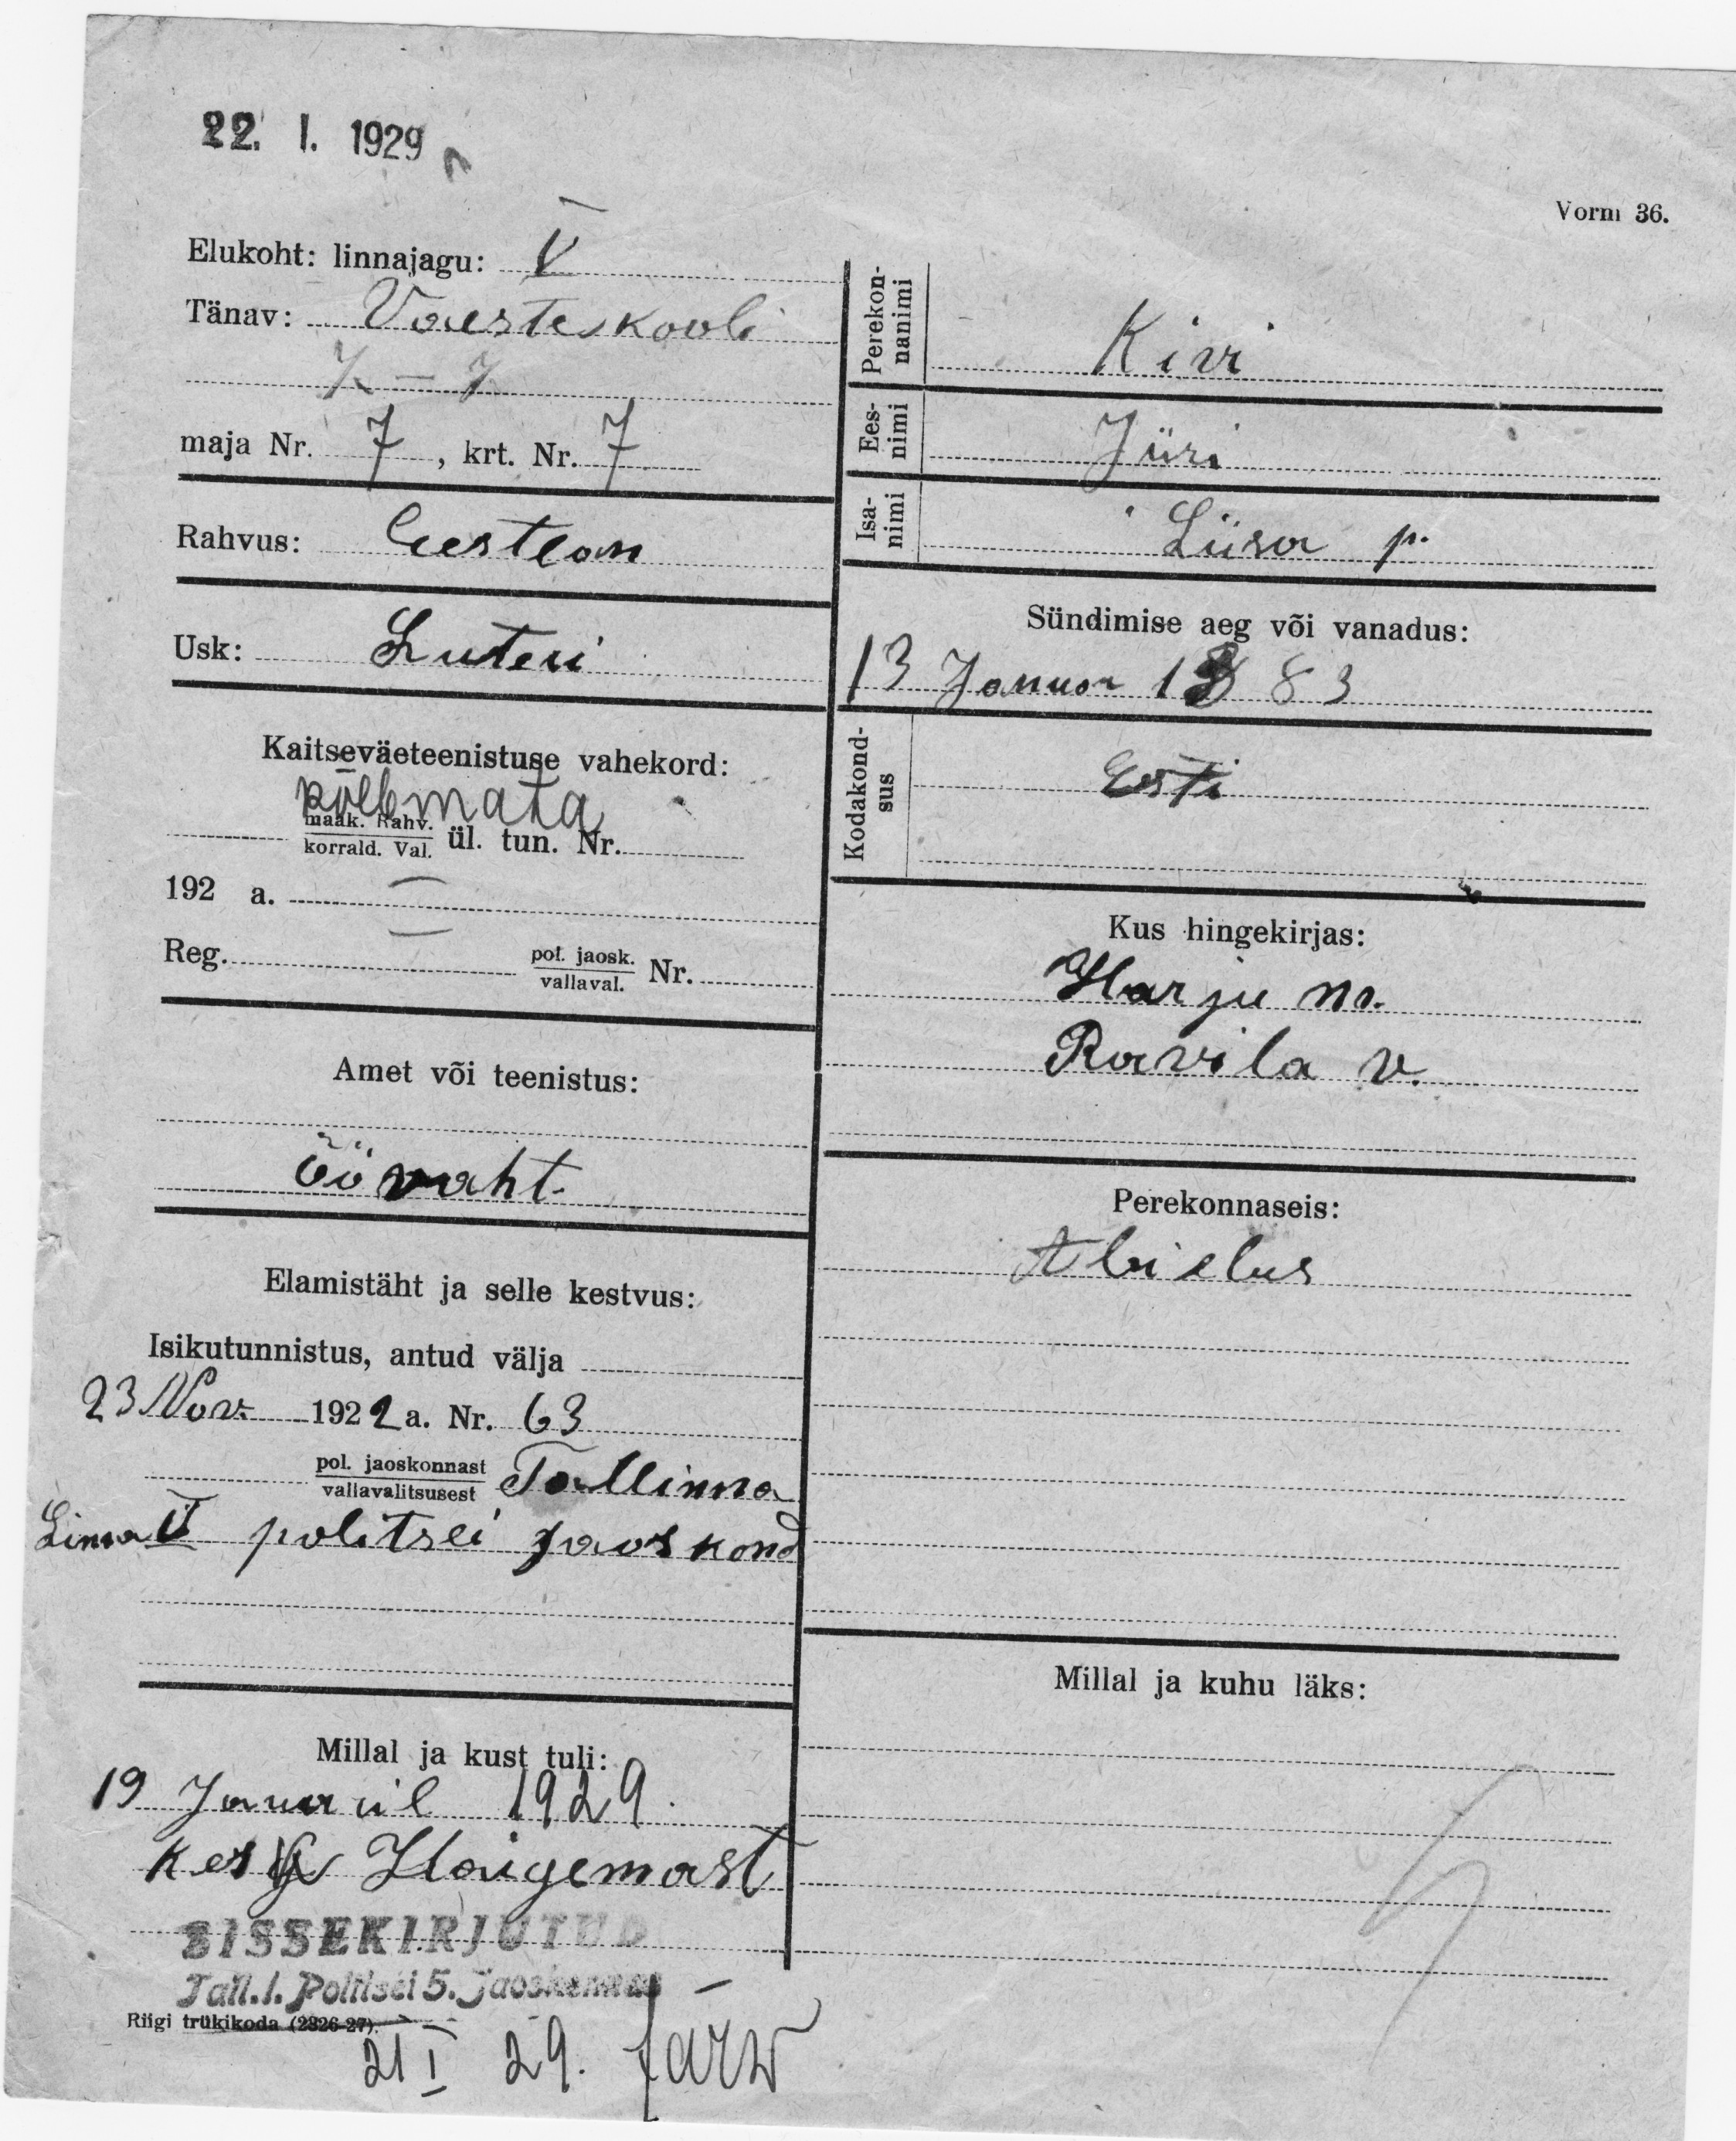 22. I. 1929
Vorm 36.
Elukoht: linnajagu: V
Tänav: Vaestekooli
7 – 7
maja Nr. 7, krt. Nr. 7
Rahvus: Eestlan
Usk: Luteri
Kaitseväeteenistuse vahekord:
kõlbmata
maak. Rahv.
korrald. Val. ül. tun. Nr.
192 a.
Reg. pol. jaosk.
vallaval. Nr.
Amet või teenistus:
öövaht
Elamistäht ja selle kestvus:
Isikutunnistus, antud välja
23 Nov. 1922 a. Nr. 63
pol. jaoskonnast
vallavalitsusest Tallinna
Linna V politsei jaoskond
Millal ja kust tuli:
19 Januaril 1929.
Haigemast
SISSEKIRJUTUD
Tall. l. Politsei 5. jaoskonnas
Riigi trükikoda (2826-27).
21 I 29.
Perekon-
nanimi Kivi
Ees-
nimi Jüri
Isa-
nimi Liisa p.
Sündimise aeg või vanadus:
13 Januar 1883
Kodakond-
sus Esti
Kus hingekirjas:
Harju m.
Ravila v.
Perekonnaseis:
Abielus
Millal ja kuhu läks: